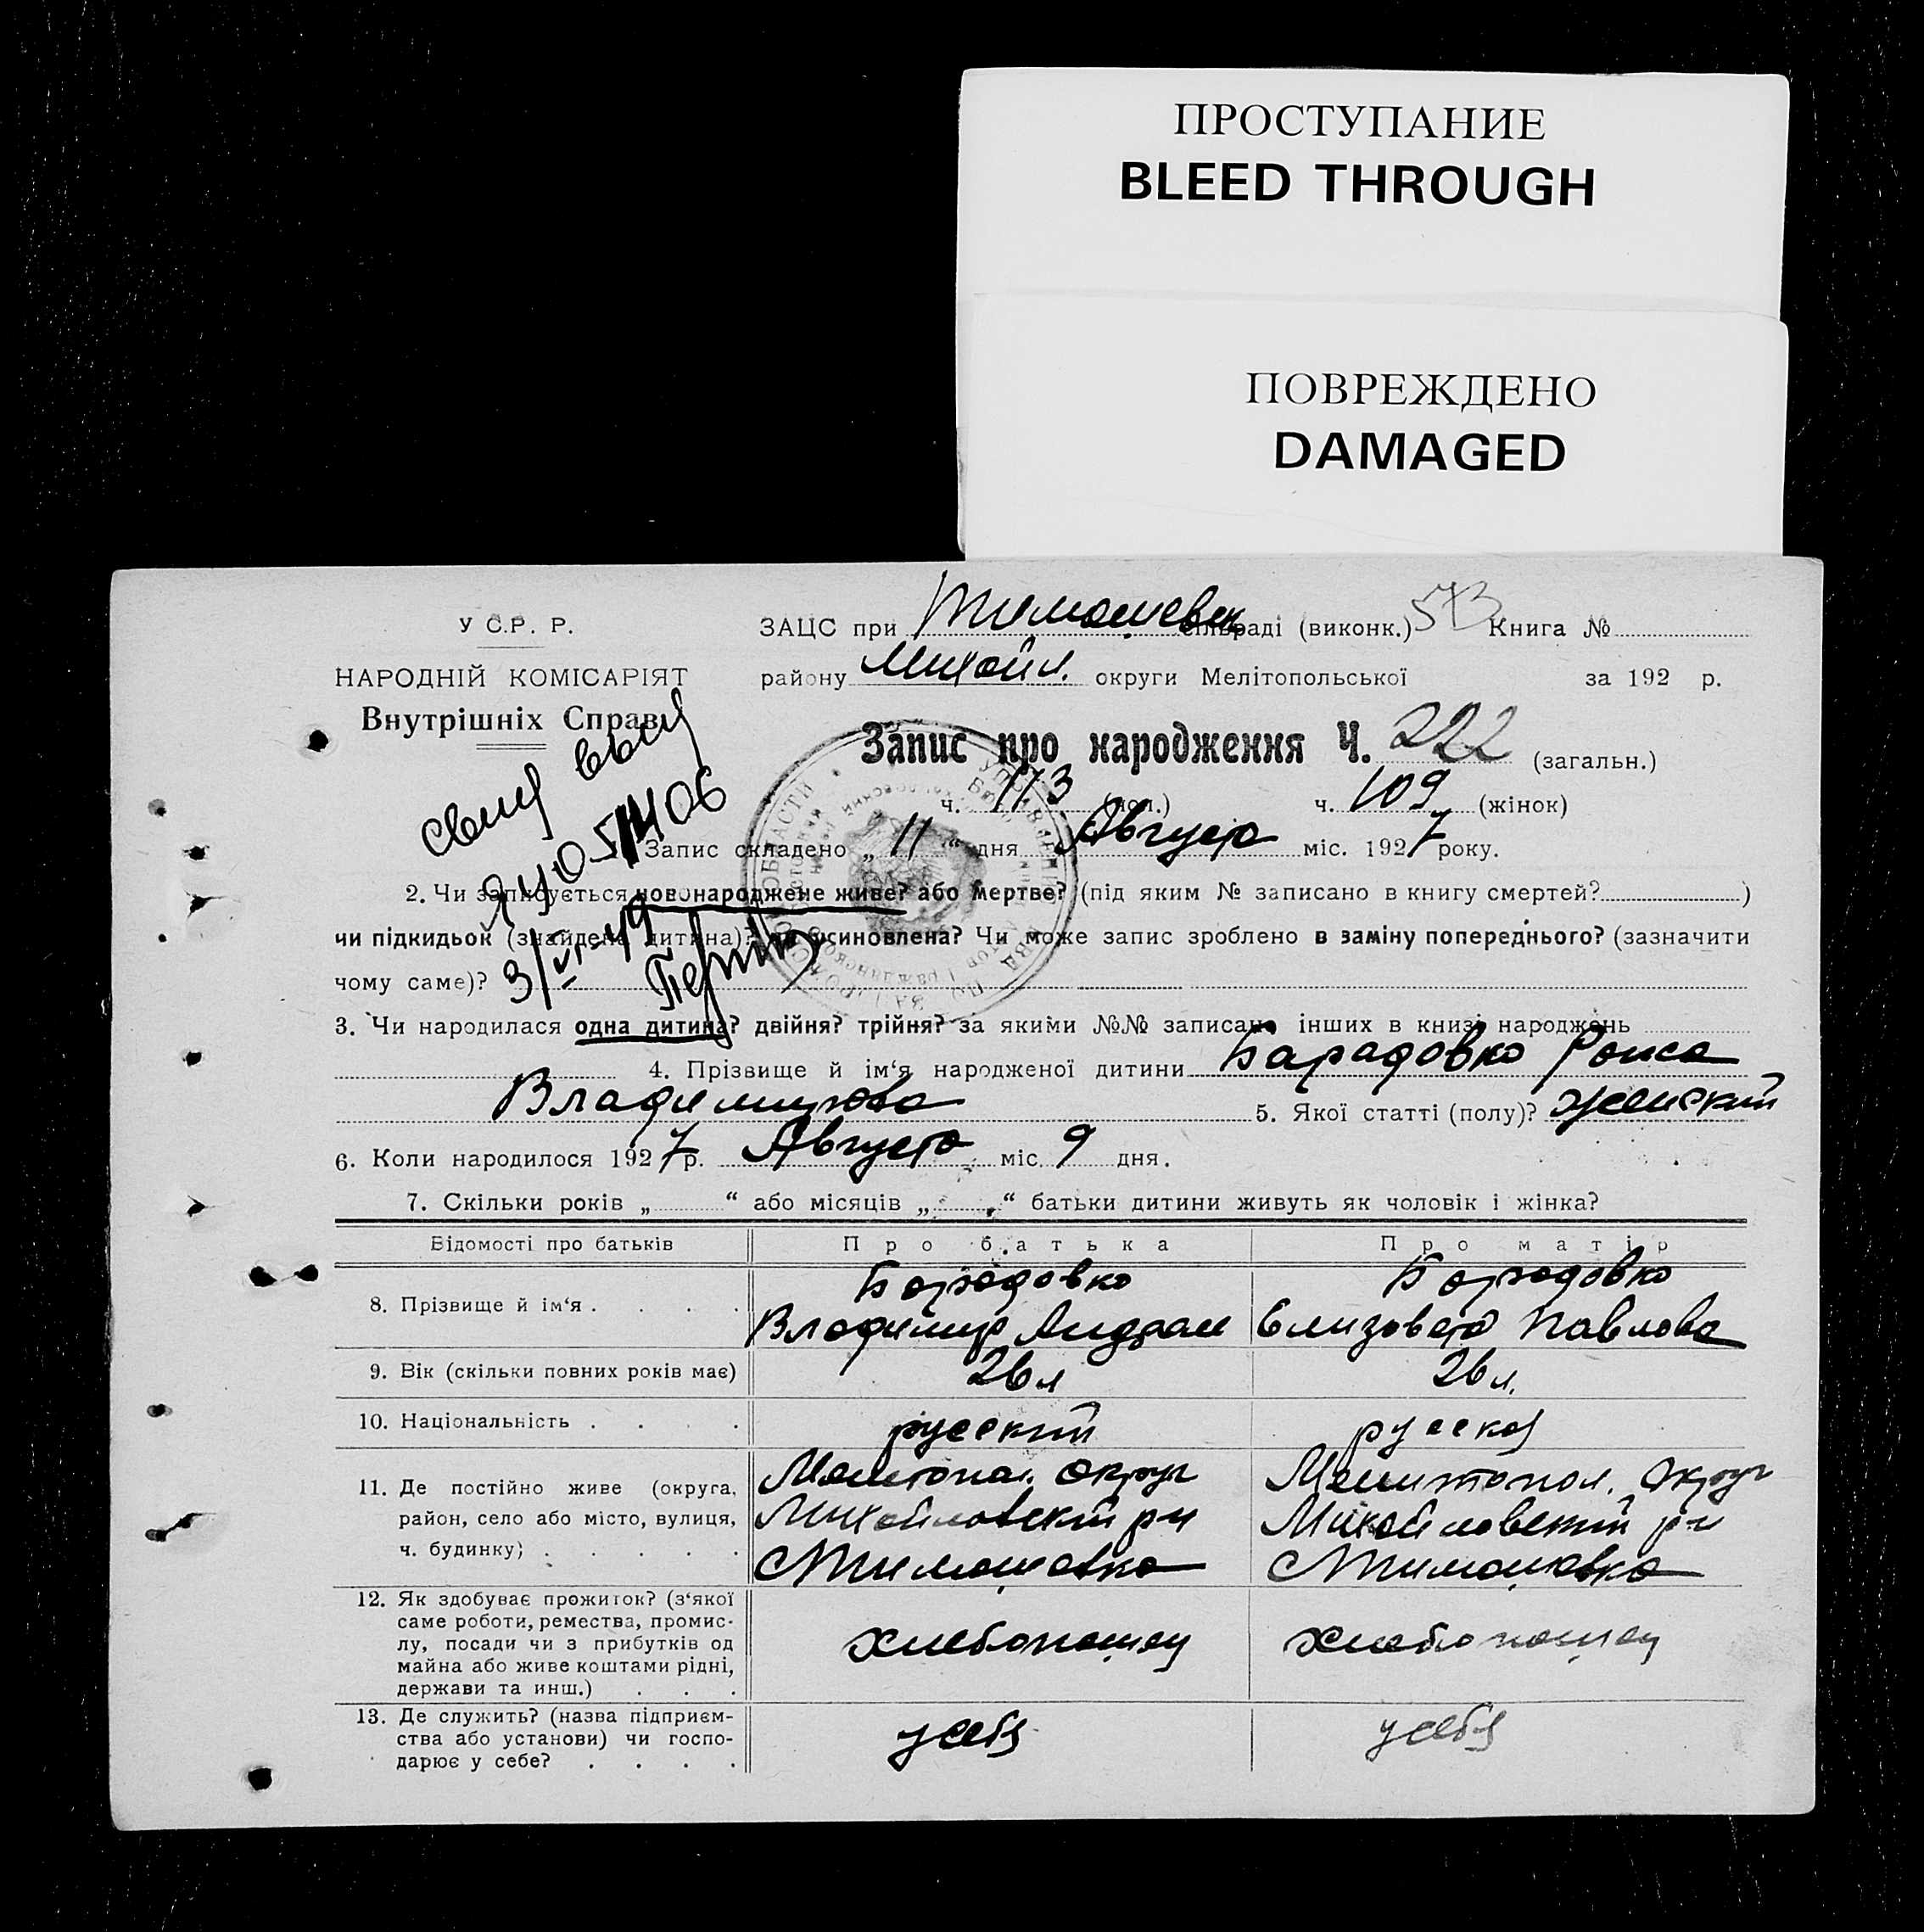 ПРОСТУПАНИЕ
BLEED THROUGH
ПОВРЕЖДЕНО
DAMAGED
У С.Р. Р.
НАРОДНІЙ КОМІСАРІЯТ
Внутрішніх Справ
ЗАЦС при Тимошевск сільраді (виконк.) 573 Книга №
району Михайл. округи Мелітопольської за 192 р.
Запис про народження Ч. 222 (загальн.)
ч. 113 (чол.) ч. 109 (жінок)
Запис складено „ 11 “ дня Августа міс. 1927 року.
свид выд
ЯЮ 051406
3/VI-49
2. Чи записується новонароджене живе? або мертве? (під яким № записано в книгу смертей? )
чи підкидьок (знайдена дитина)? чи усиновлена? Чи може запис зроблено в заміну попереднього? (зазначити
чому саме)?
3. Чи народилася одна дитина? двійня? трійня? за якими №№ записано інших в книзі народжень
4. Прізвище й ім‘я народженої дитини Барадовко Роиса
Владимирова 5. Якої статті (полу)? женский
6. Коли народилося 1927 р. Августа міс. 9 дня.
7. Скільки років „ “ або місяців „ “ батьки дитини живуть як чоловік і жінка?
Відомості про батьків Про батька Про матір
8. Прізвище й ім‘я . . . . Бородовко Бородовко
Владимир Андреи Елизовета Павлова
9. Вік (скільки повних років має) 26 л 26 л.
10. Національність . . . . русский русская
11. Де постійно живе (округа, Мелитопол. округ Мелитопол. округ
район, село або місто, вулиця, Михайловский р-н Михайловский р-н
ч. будинку) . . . . . Тимошовка Тимошовка
12. Як здобуває прожиток? (з‘якої
саме роботи, ремества, промис-
лу, посади чи з прибутків од хлебопашец хлебопашец
майна або живе коштами рідні,
держави та инш.) . . .
13. Де служить? (назва підприєм-
ства або установи) чи госпо- у себя у себя
дарює у себе? . . . .